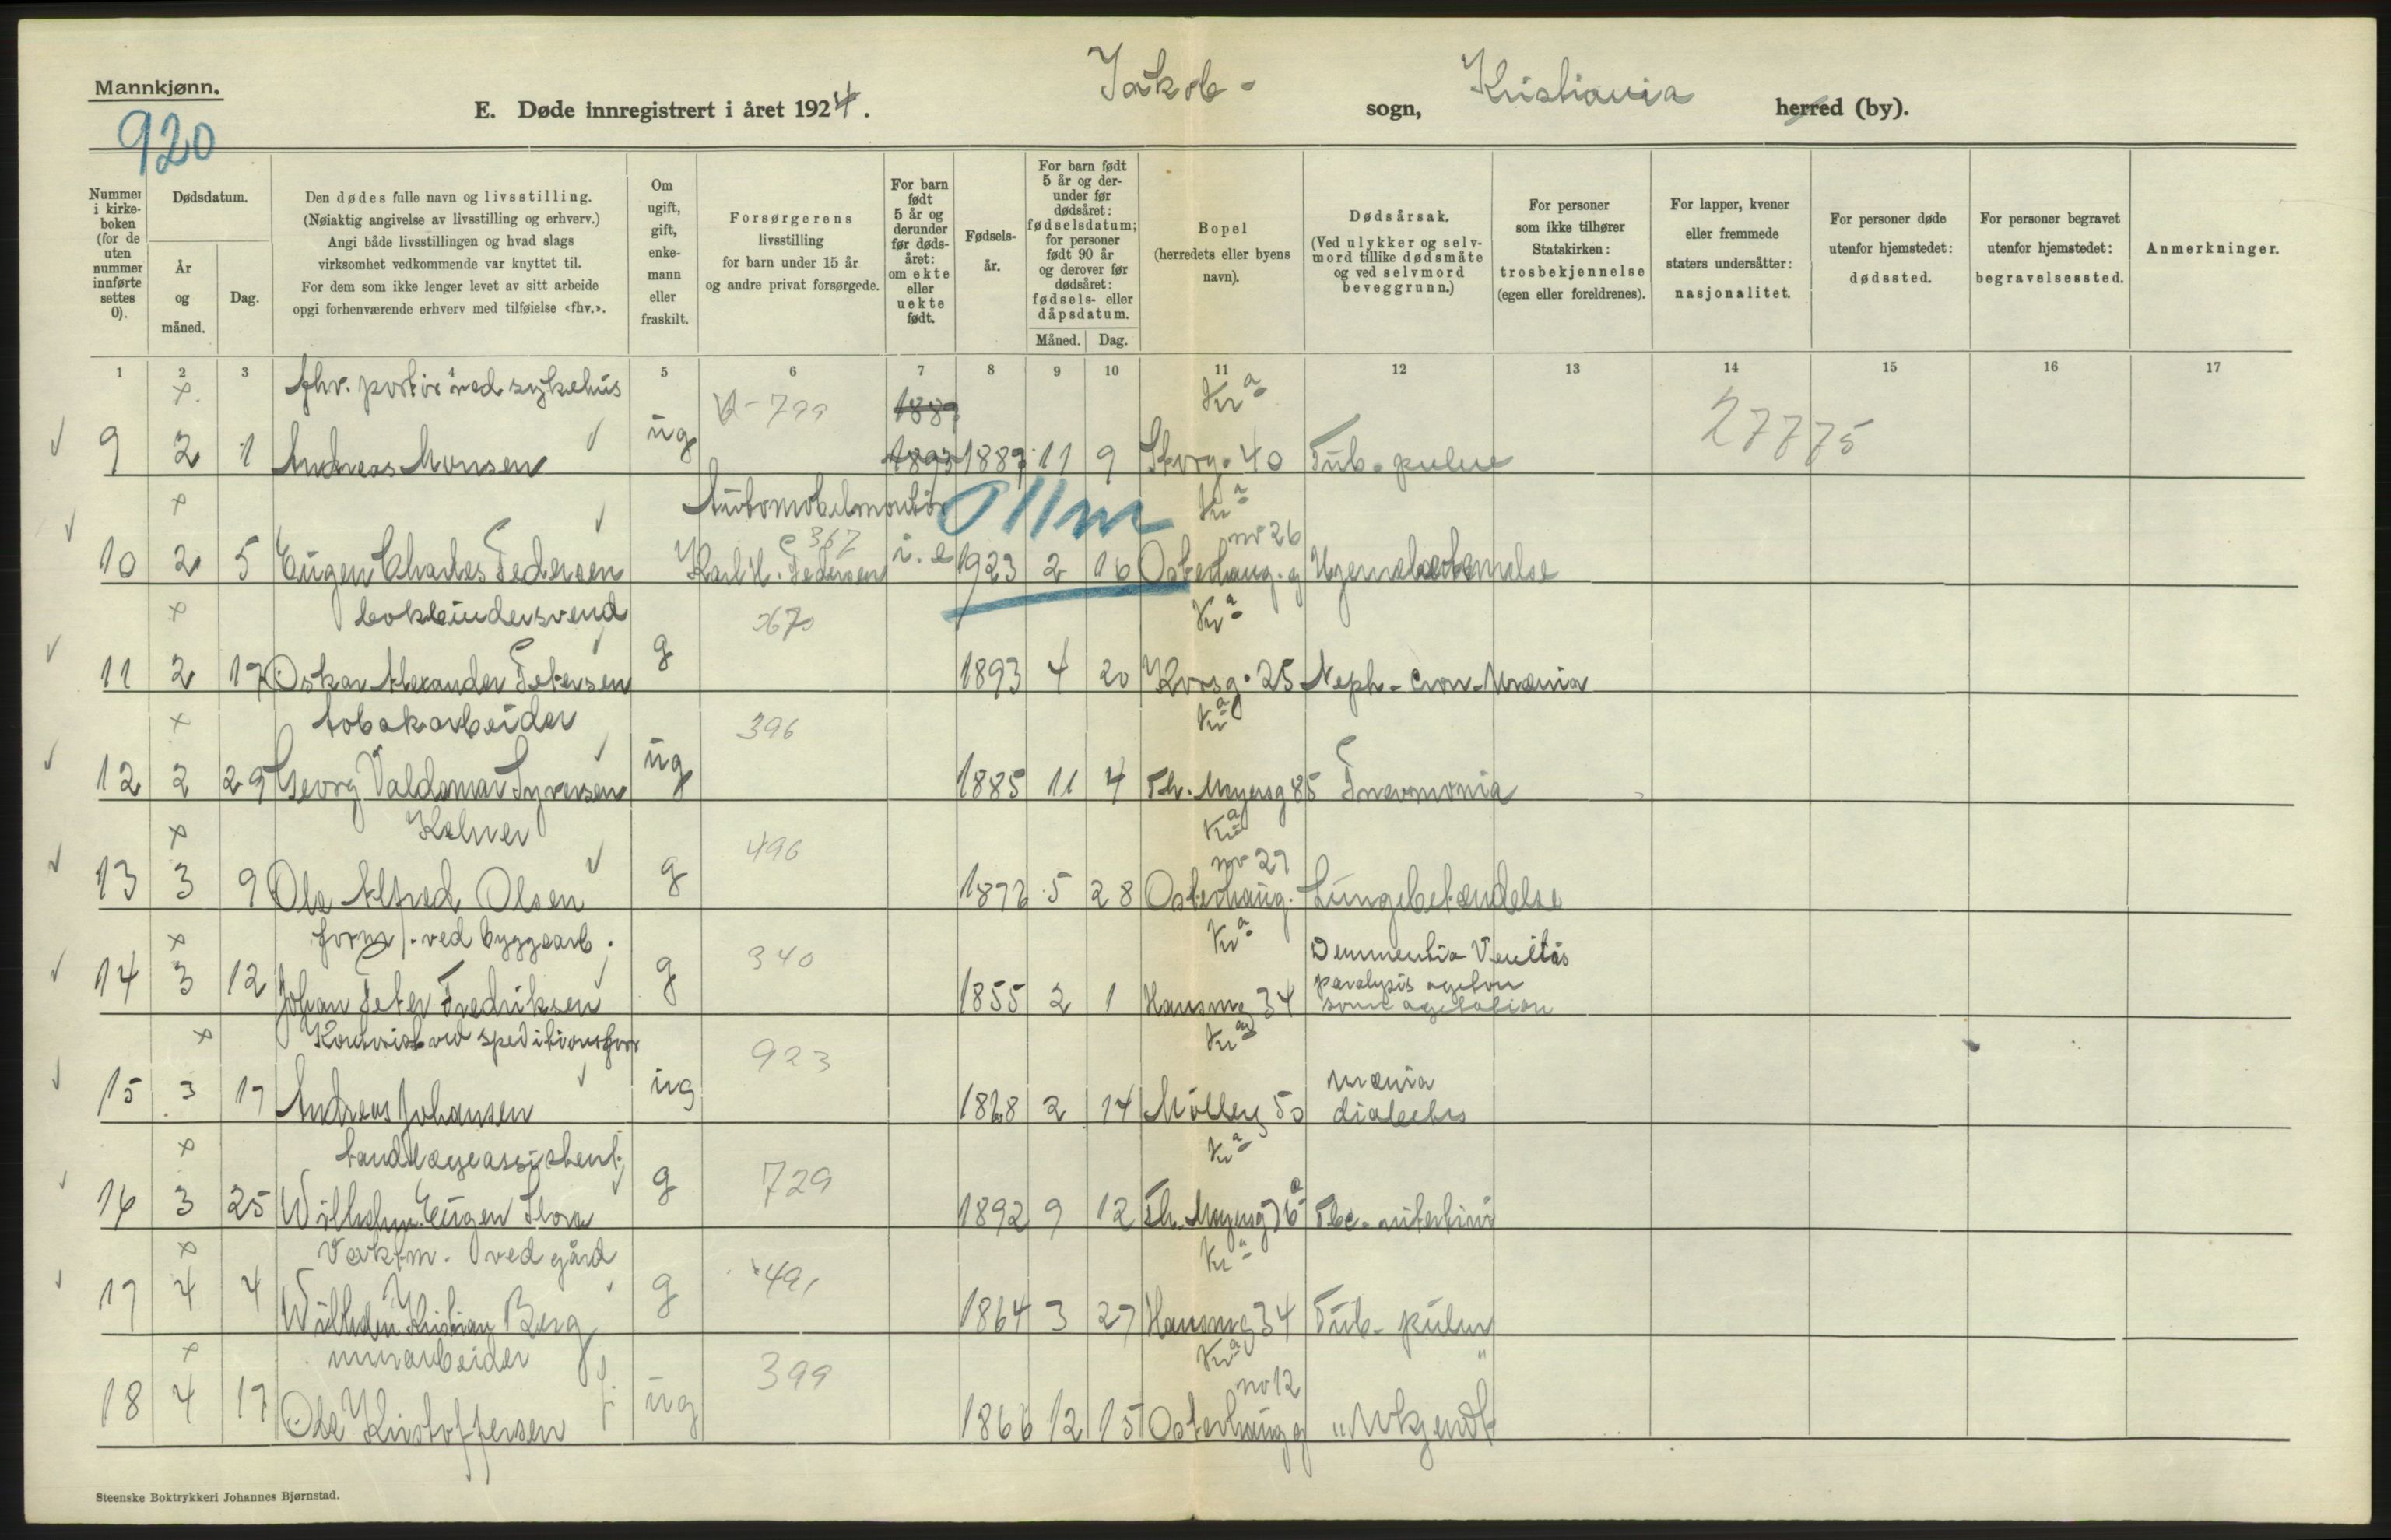 Mannkjønn.
920
E. Døde innregistrert i året 1924.
Jakob - sogn, Kristiania herred (by).
Nummer i kirkeboken (for de uten nummer innførte settes 0).
Dødsdatum.
År og måned.
Dag.
Den dødes fulle navn og livsstilling.
(Nøiaktig angivelse av livsstilling og erhverv.)
Angi både livsstillingen og hvad slags
virksomhet vedkommende var knyttet til.
For dem som ikke lenger levet av sitt arbeide
opgi forhenværende erhverv med tilføielse «fhv.».
Om ugift, gift, enkemann eller fraskilt.
Forsørgerens
livsstilling
for barn under 15 år
og andre privat forsørgede.
For barn født 5 år og derunder før dødsåret: om ekte eller uekte født.
Fødselsår.
For barn født 5 år og derunder før dødsåret: fødselsdatum; for personer født 90 år og derover før dødsåret: fødsels- eller dåpsdatum.
Måned. Dag.
Bopel
(herredets eller byens navn).
Dødsårsak.
(Ved ulykker og selvmord tillike dødsmåte og ved selvmord beveggrunn.)
For personer
som ikke tilhører
Statskirken:
trosbekjennelse
(egen eller foreldrenes).
For lapper, kvener
eller fremmede
staters undersåtter:
nasjonalitet.
For personer døde
utenfor hjemstedet:
dødssted.
For personer begravet
utenfor hjemstedet:
begravelsessted.
Anmerkninger.
1 2 3 4 5 6 7 8 9 10 11 12 13 14 15 16 17
x fhv. portør ved sykehus 799 1889 Kr a 27775
9 2 1 Andreas Monsen ug 1893 1889 11 9 Storg. 40 Tub. pulm
x Automobilmontør 011m Kr a
367 nr 26
10 2 5 Eugen Charles Pedersen Karl H. Pedersen i. e 1923 2 16 Osterhaug. g Hjernebetennelse
x bokbindersvend 367 Kr a
11 2 17 Oskar Alexander Petersen g 1893 4 20 Korsg. 25 Neph - cron - Uræmia
x tobakarbeider 396 Kr a
12 2 29 Georg Valdemar Syversen ug 1885 11 4 Th. Meyersg 85 Pnevmonia
x Kelner 496 Kr a
nr 27
13 3 9 Ole Alfred Olsen g 1872 5 28 Osterhaug. Lungebetændelse
x form. ved byggearb. 340 Kr a
14 3 12 Johan Peter Fredriksen g 1855 2 1 Hausmg 34 Demmentia
paralysis agitan
x Kontorist ved speditionsforr 923 Kr a
15 3 17 Andreas Johansen ug 1868 2 14 Mølleg 50 uræmia
diabetes
x tandlægeassistent 729 Kr a
16 3 25 Wilhelm Eugen g 1892 9 12 Th. Meyersg
x Vaktm. ved gård 491 Kr a
17 4 4 Wilhelm Kristian Berg g 1864 3 27 Hausmg 34 Tub - pulm
x murarbeider 399 Kr a "
nr 12
18 4 17 Ole Kristoffersen ug 1866 12 15 Osterhaugg "Ukjendt
Steenske Boktrykkeri Johannes Bjørnstad.